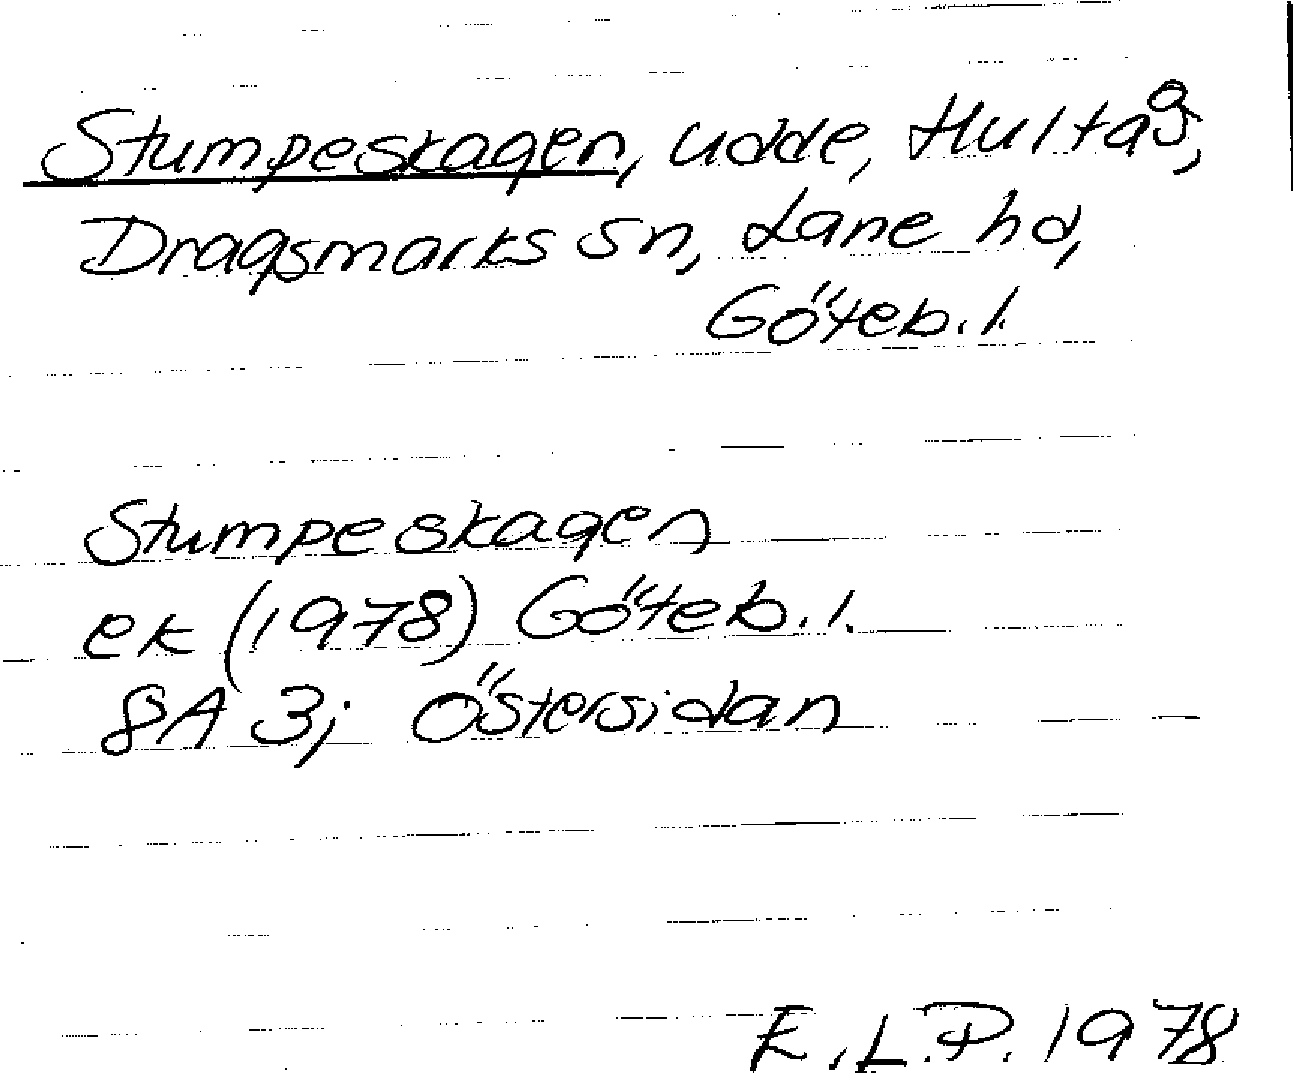 Stumpeskagen, udde, Hultås,
Dragsmarks sn, Lane hd,
Göteb. l.
Stumpeskagen
ek (1978) Göteb. l.
8A 3; Östersidan
E.L.P. 1978